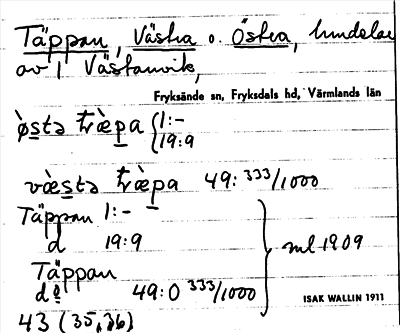 Täppan, Västra o. Östra, lundelar
av 1 Västanvik,
Fryksände sn, Fryksdals hd, Värmlands län
òsta træ̀pa {1:-
19:9
væsta træ̀pa 49:333/1000
Täppan 1:-
d 19:9
Täppan
do 49:0 333/1000
ml 1909
ISAK WALLIN 1911
43 (35,36)